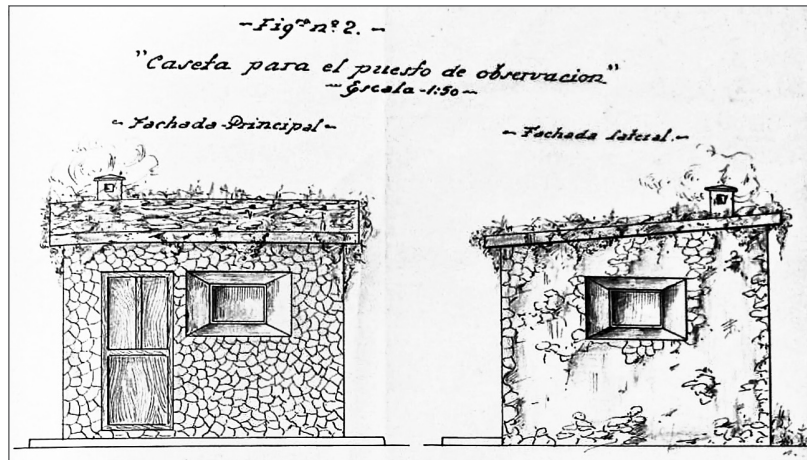 -Figᵗᵃ nº 2.-
"Caseta para el puesto de observacion"
-Escala-1:50-
-Fachada-Principal-
-Fachada lateral.-